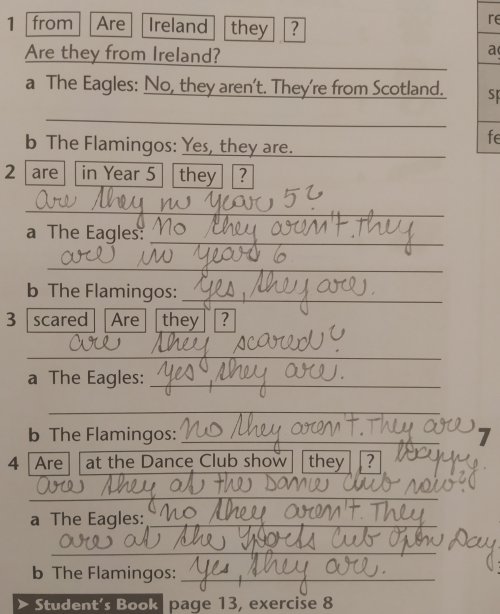 1 from Are Ireland they ?
Are they from Ireland?
a The Eagles: No, they aren't. They're from Scotland.
b The Flamingos: Yes, they are.
2 are in Year 5 they ?
are they in year 5?
a The Eagles: No they aren't. They
are in years 6
b The Flamingos: yes, they are.
3 scared Are they ?
are they scared?
a The Eagles: yes, they are.
b The Flamingos: no they aren't. They are
happy.
7
4 Are at the Dance Club show they ?
are they at the Dance Club
a The Eagles: no they aren't. They
are at the Sports Cub Open Day
b The Flamingos: yes, they are.
➤ Student's Book page 13, exercise 8
re
sp
fe